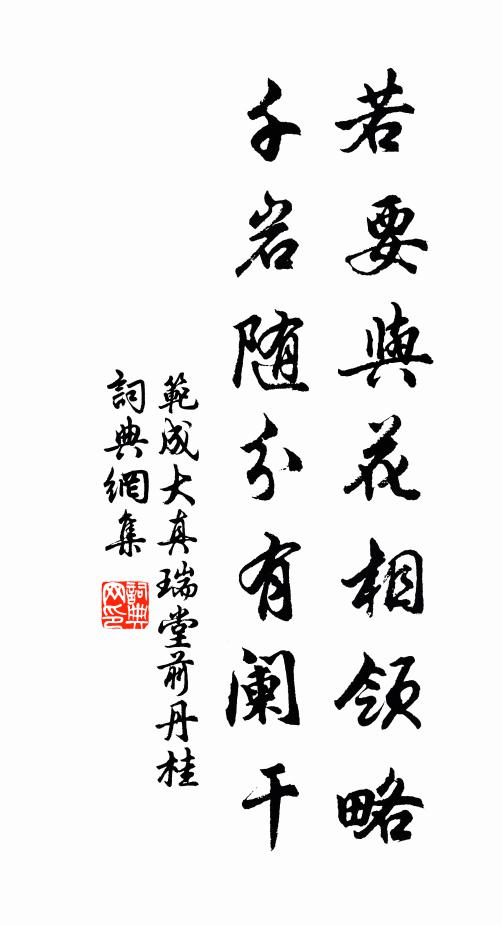 若要與花相領略
千岩随分有阑干
範成大真瑞堂前丹桂
詞典網集
詞典网印